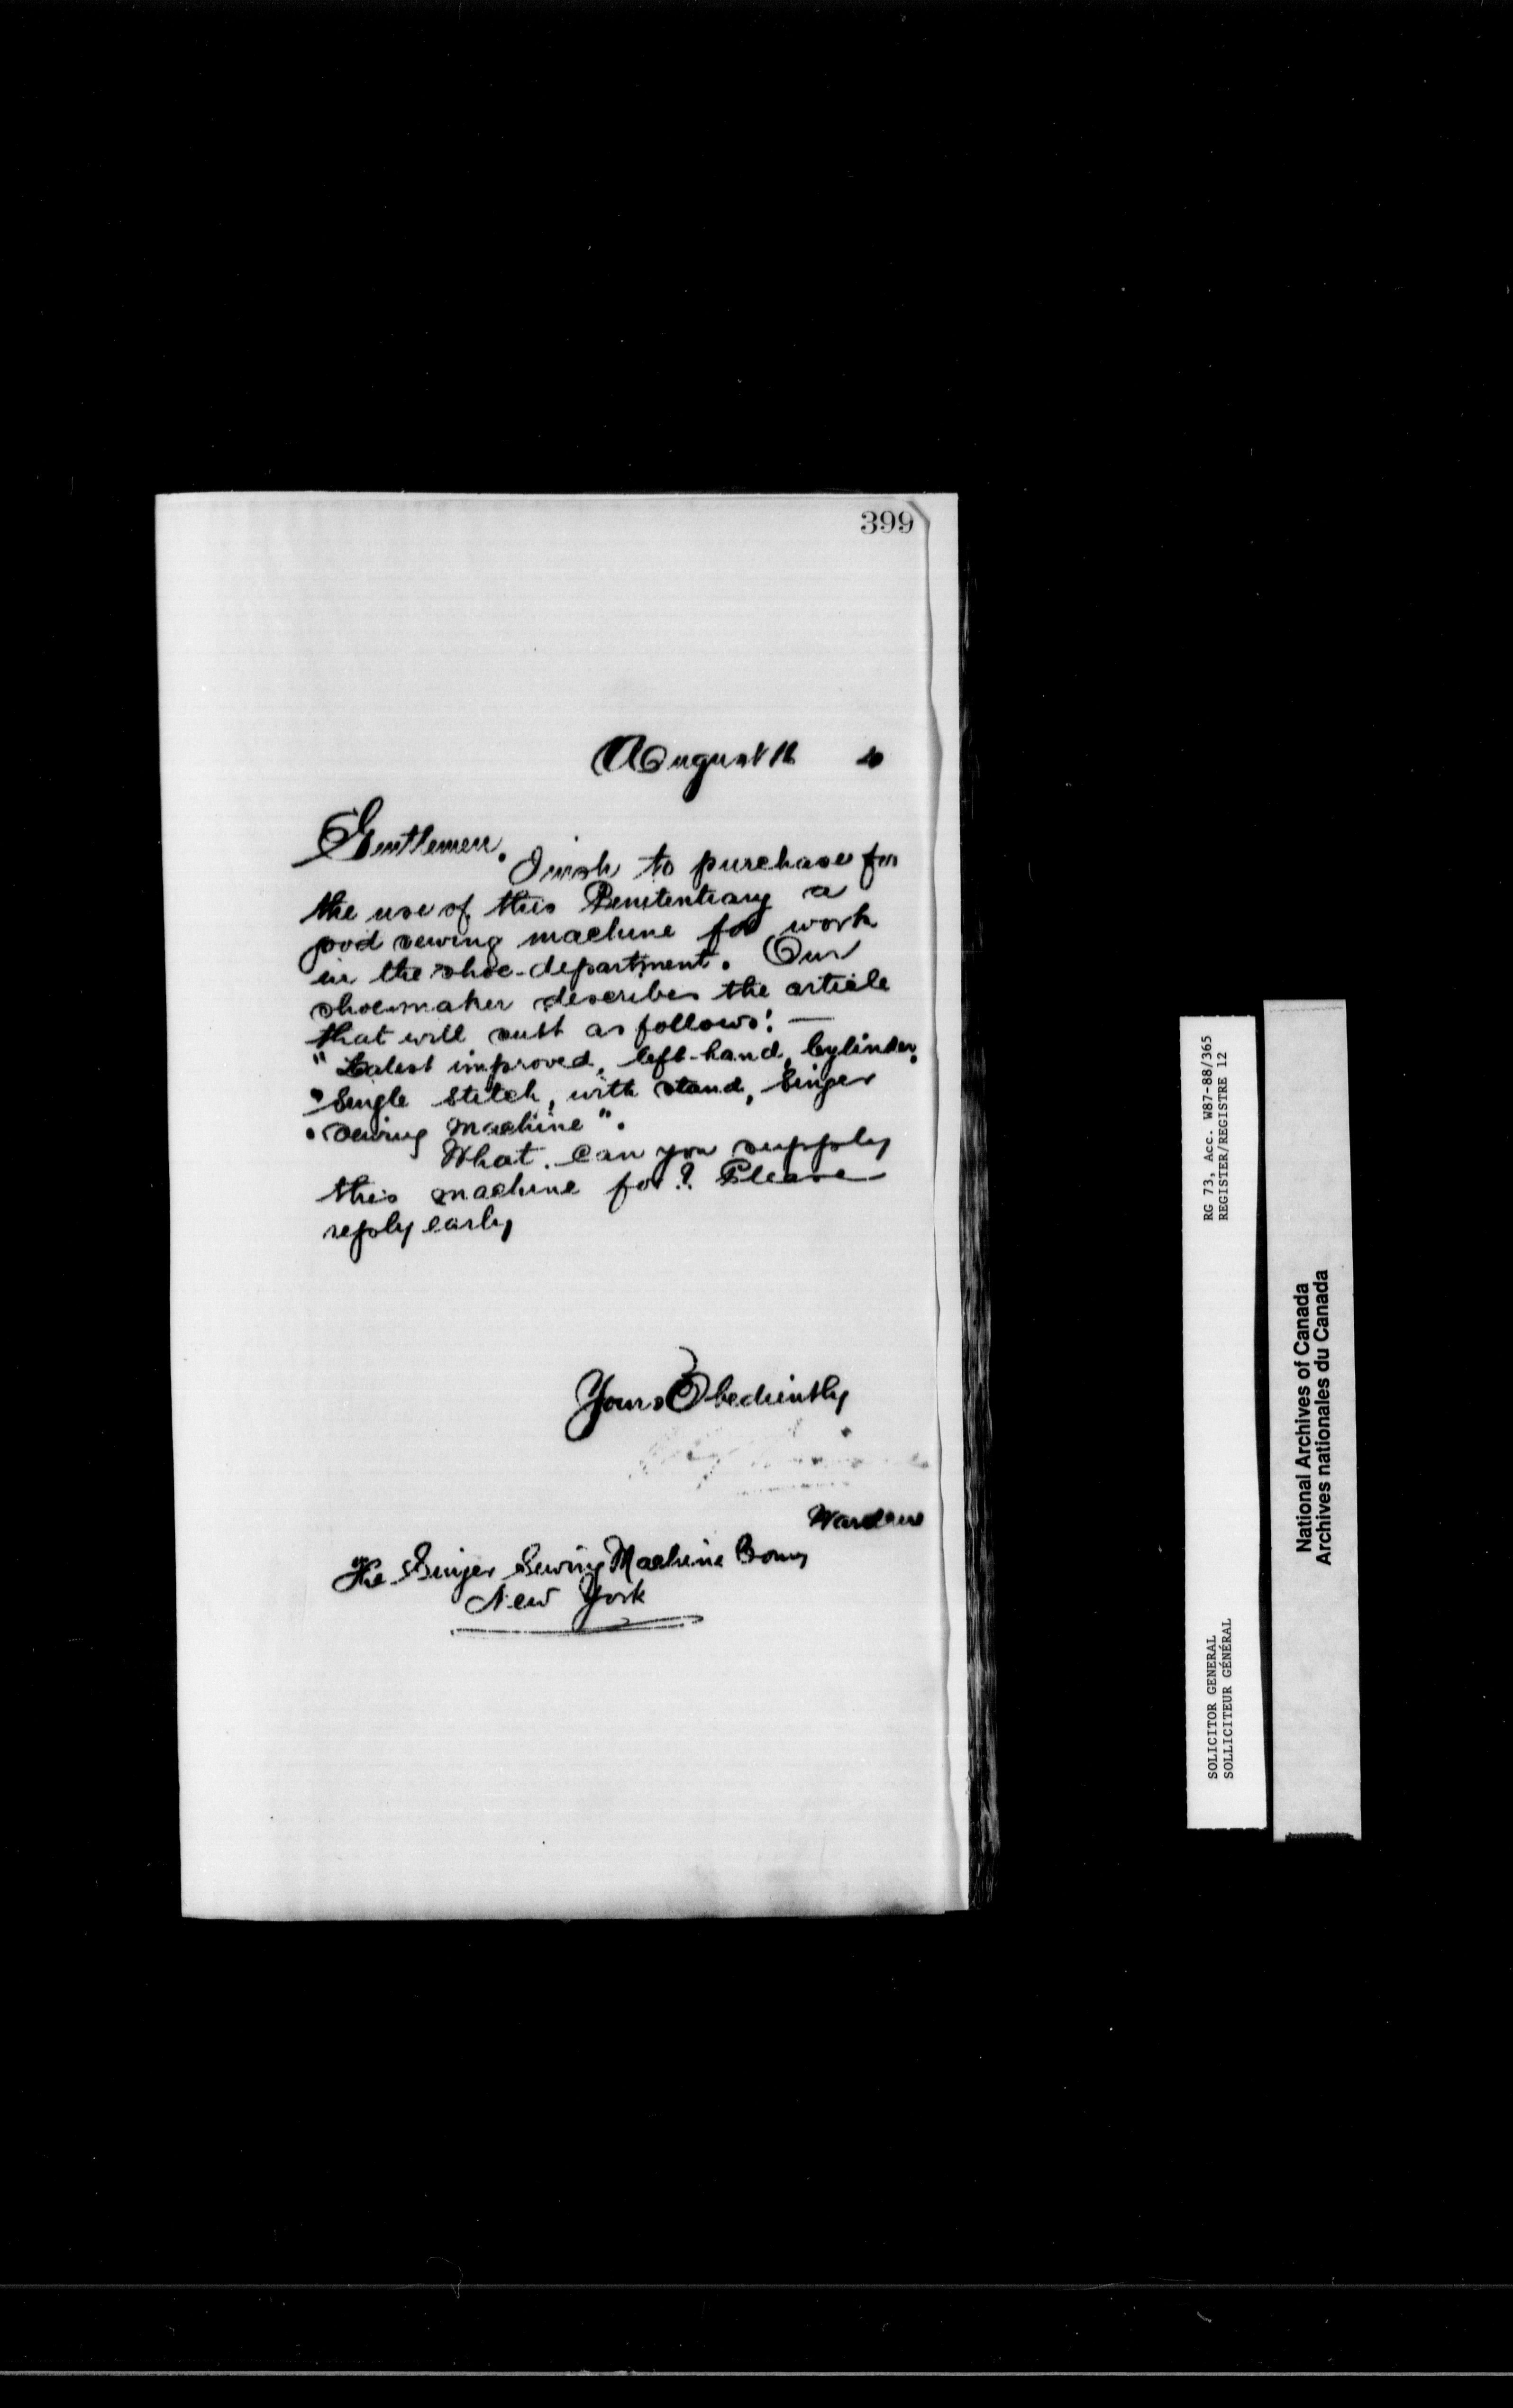 399
August 16
Gentlemen.
I wish to purchase for
the use of this Penitentiary a
good sewing machine for work
in the shoe-department. Our
shoemaker describes the article
that will suit as follows: —
"Latest improved, left-hand, Cylinder,
"Single Stitch, with stand, Singer
"Sewing Machine".
What can you supply
this machine for? Please
reply early
Yours Obediently
Warden
The Singer Sewing Machine Comy
New York
RG 73, Acc. W87-88/365
REGISTER/REGISTRE 12
SOLICITOR GENERAL
SOLLICITEUR GÉNÉRAL
National Archives of Canada
Archives nationales du Canada